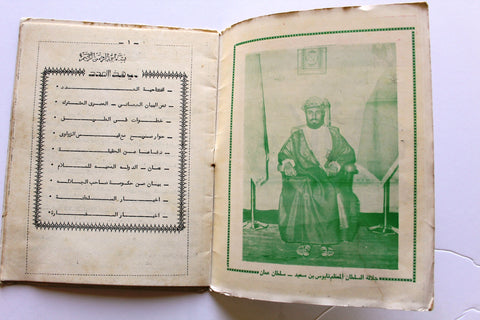 ـ ١ ـ
بسم الله الرحمن الرحيم
في هذا العدد
افتتاحية العدد
نص البيان العماني ـ المصري المشترك
خطوات في الطريق
حوار صريح مع فهمي
دفاعا عن الحقيقة
عمان الدولة المحبة للسلام
بيان من حكومة صاحب الجلالة
أخبار السلطنة
أخبار السفارة
جلالة السلطان المعظم قابوس بن سعيد ـ سلطان عمان